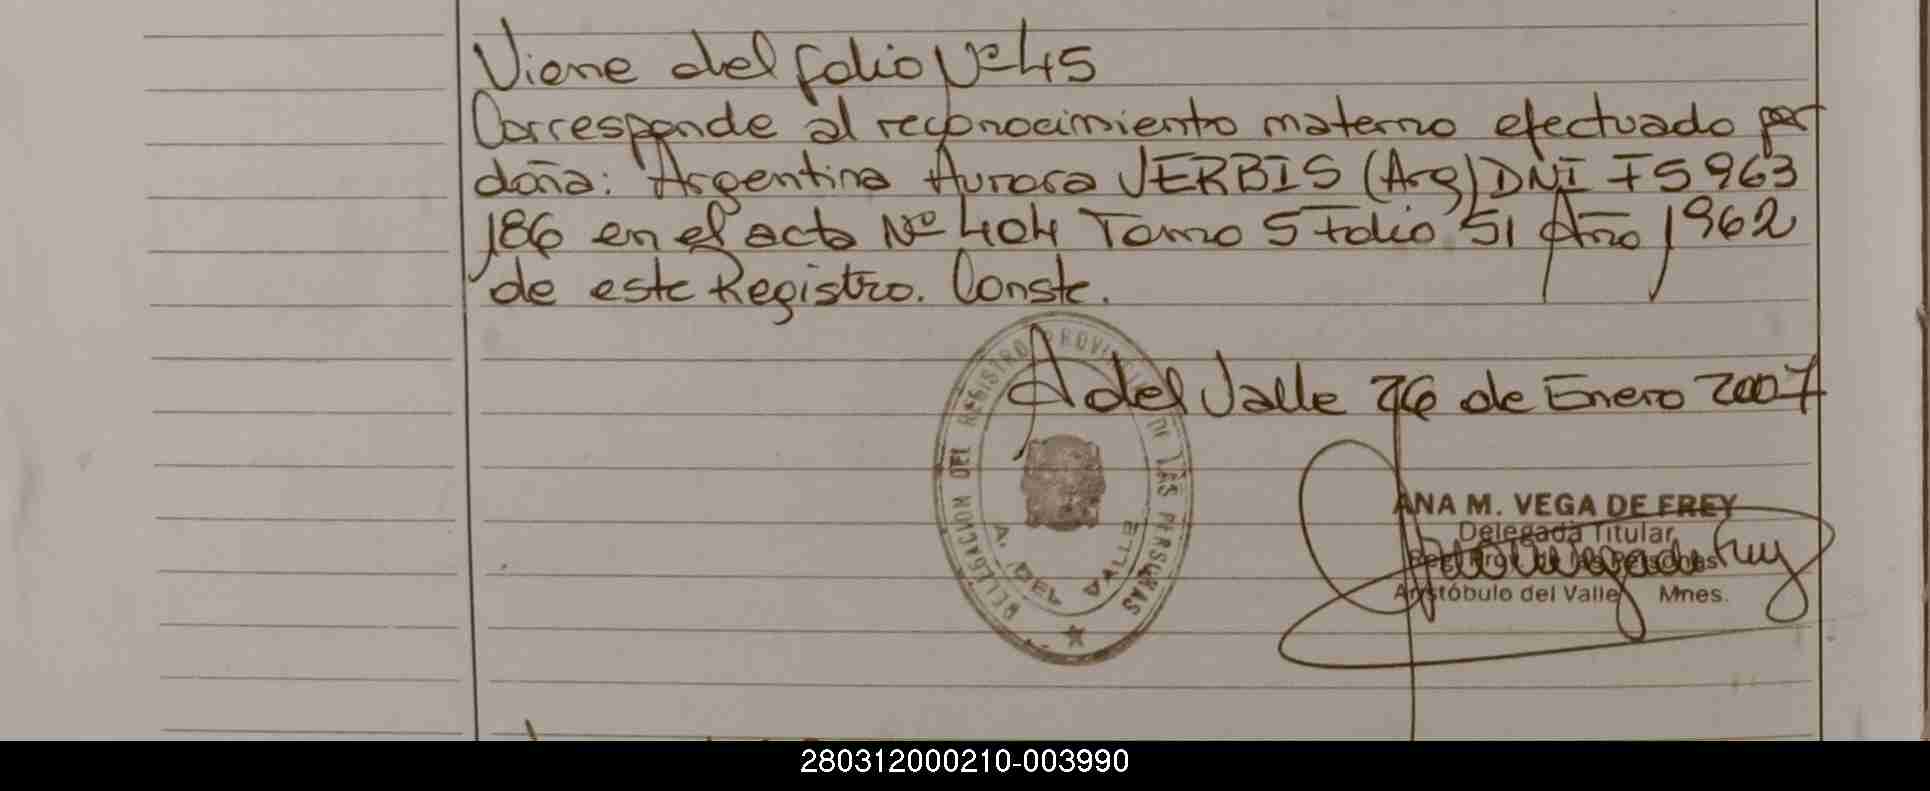 Viene del folio Nº 45
Corresponde al reconocimiento materno efectuado por
doña: Argentina Aurora VERBIS (Arg) DNI F5963
186 en el acta Nº 404 Tomo 5 Folio 51 Año 1962
de este Registro. Conste.
A del Valle 26 de Enero 2007
DELEGACION DEL REGISTRO PROVINCIAL DE LAS PERSONAS
A. DEL VALLE
ANA M. VEGA DE FREY
Delegada Titular
Registro de las Personas
Aristóbulo del Valle Mnes.
280312000210-003990